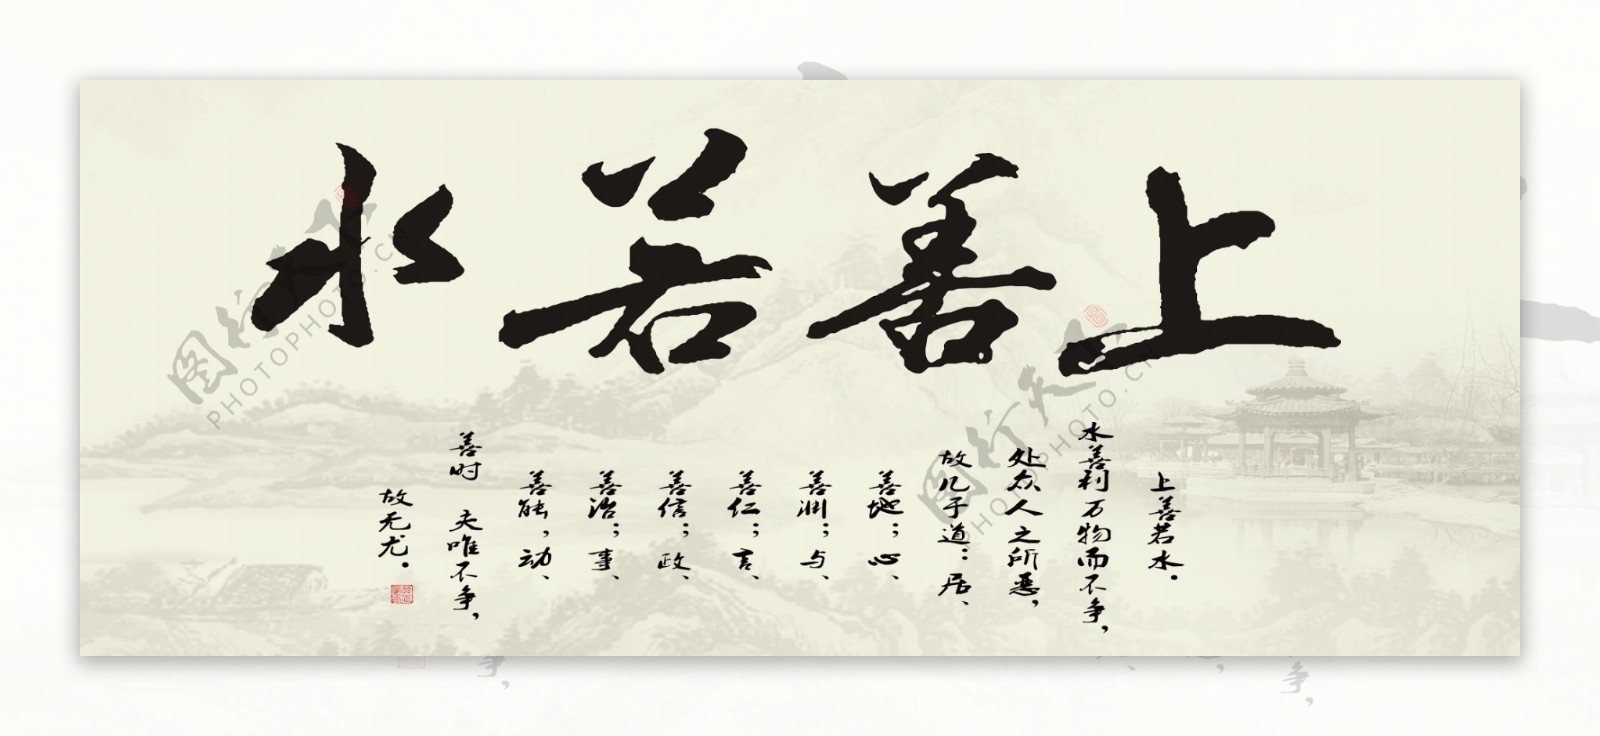 上善若水
上善若水。
水善利万物而不争，
处众人之所恶，
故几于道：居、
善地；心、
善渊；与、
善仁；言、
善信；政、
善治；事、
善能，动、
善时 夫唯不争，
故无尤。
图行天下
PHOTOPHOTO.CN
图行天下
PHOTOPHOTO.CN